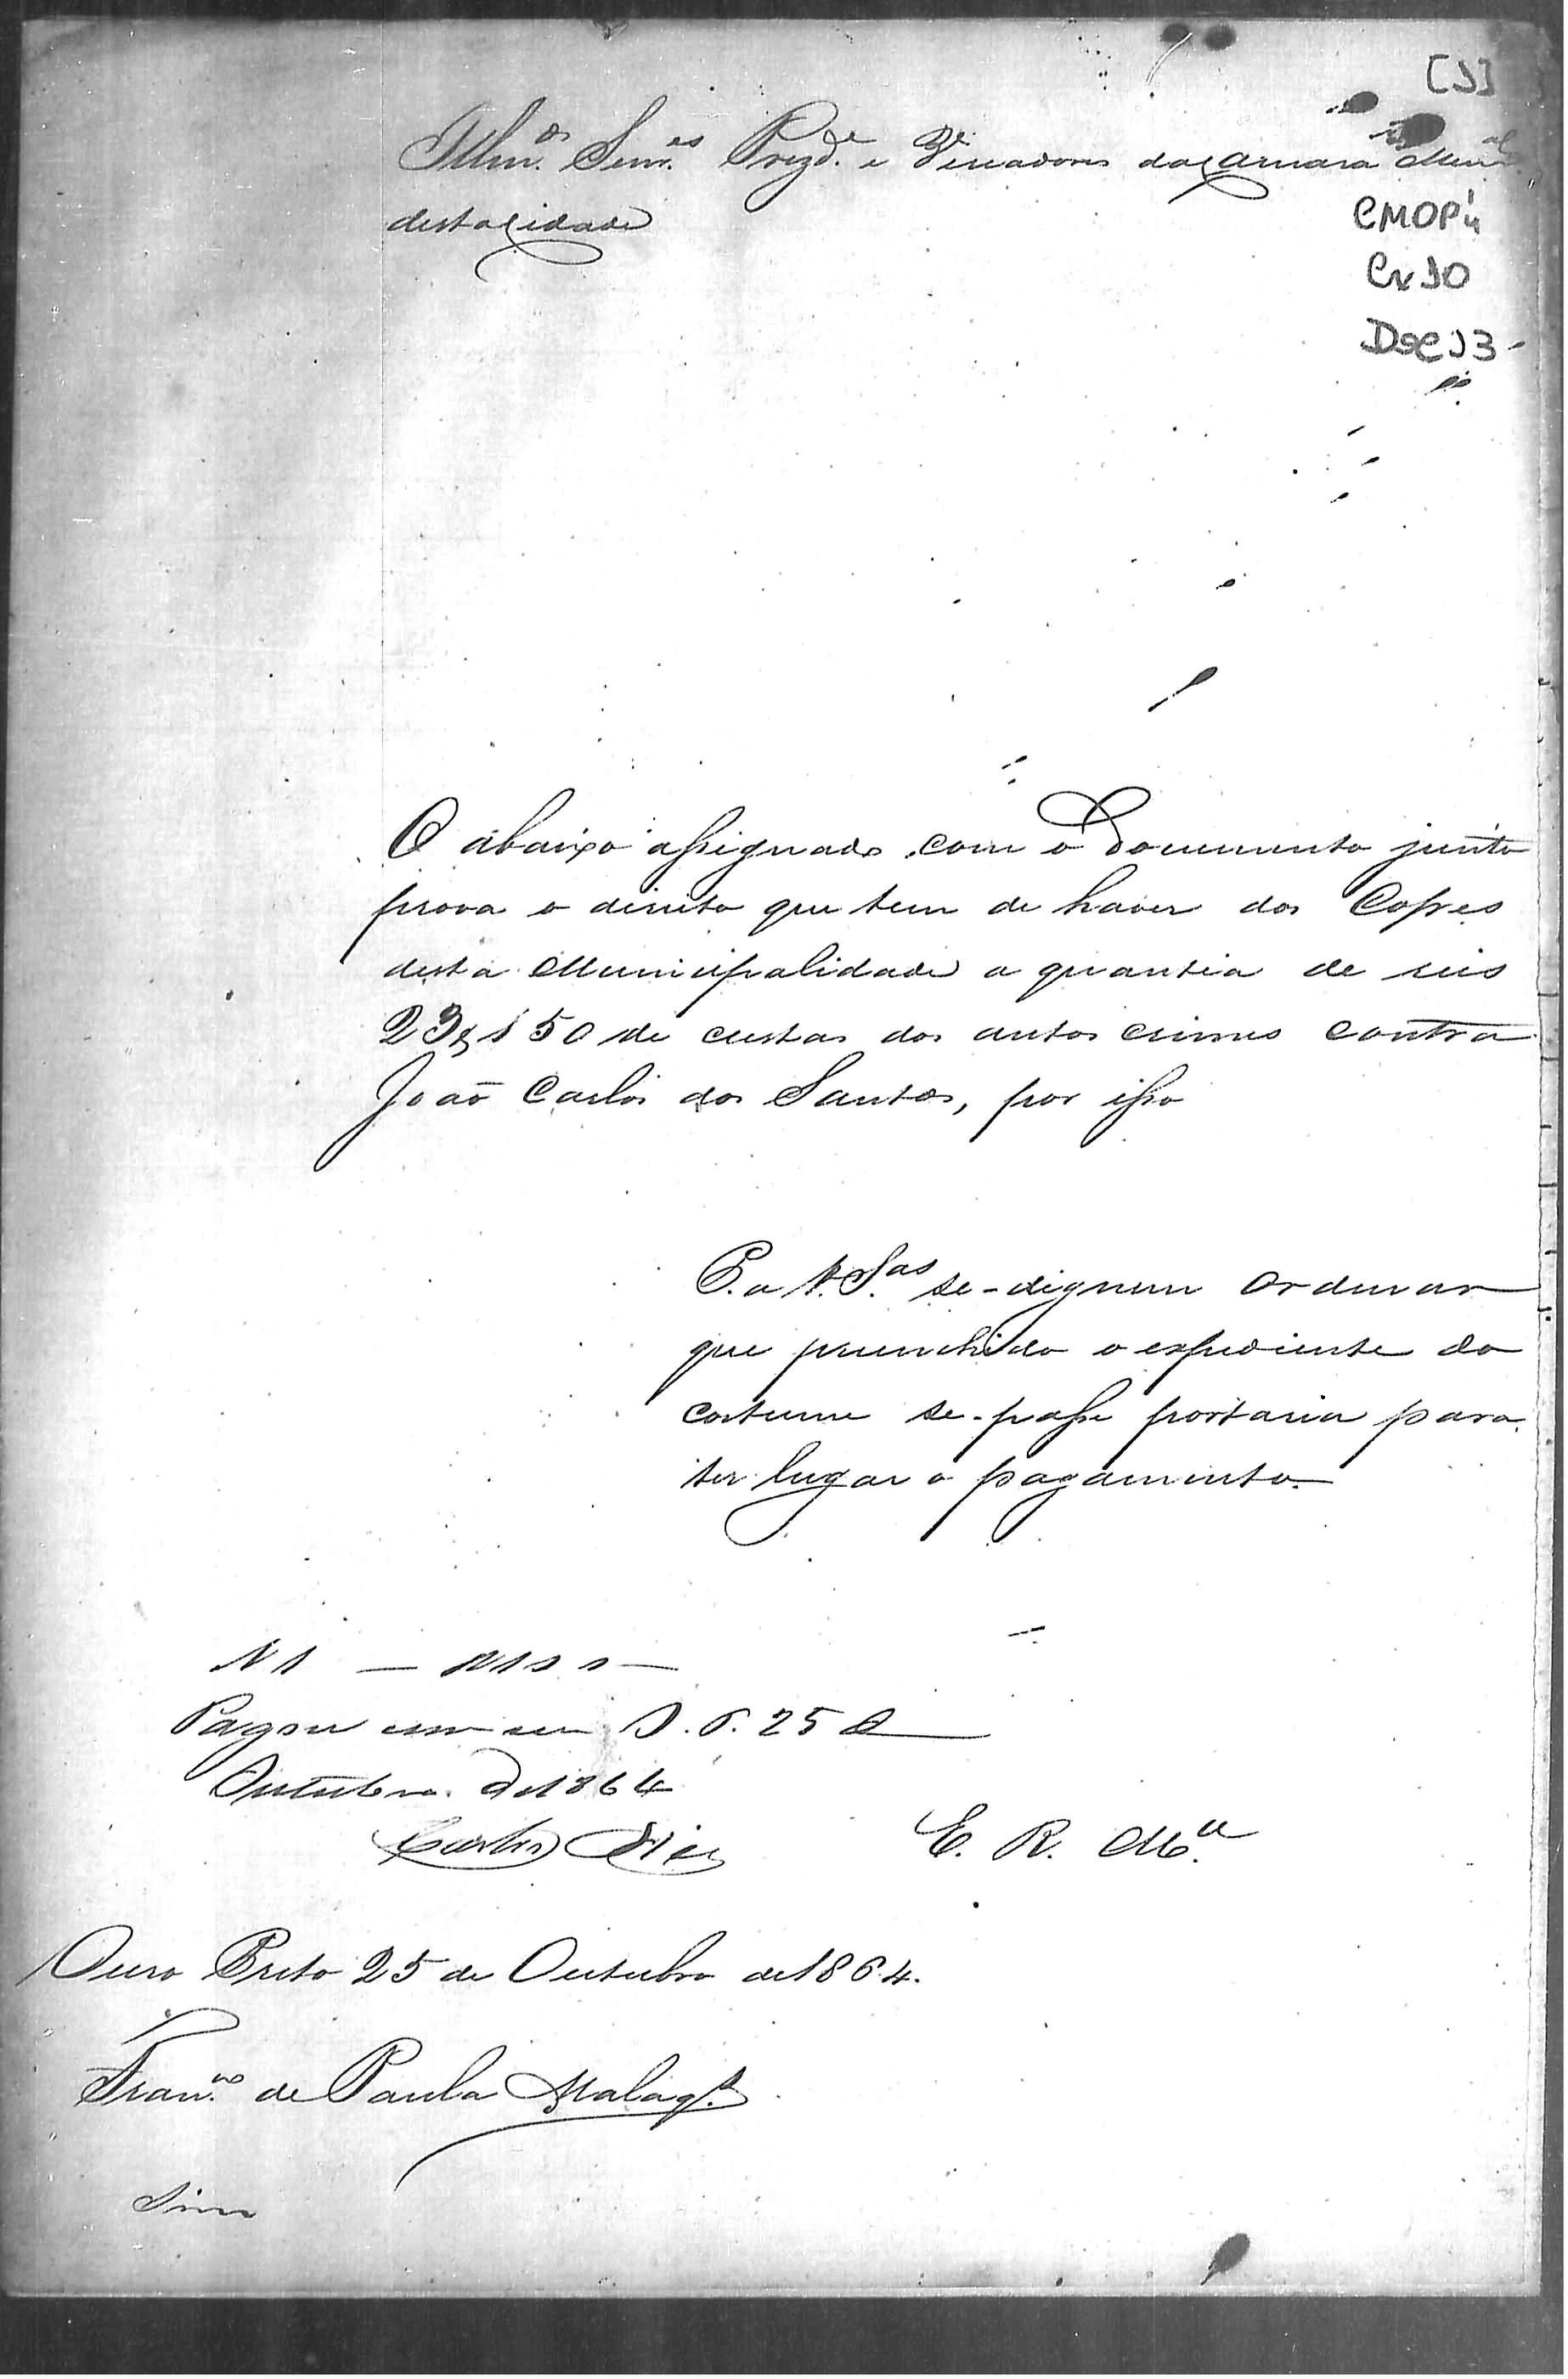 [1]
Illm.os Senr.es Prezd.e e Vereadores da Camara Mun.al
desta Cidade
CMOP
Cx 10
Doc 13
O abaixo assignado com o Documento junto
prova o direito que tem de haver dos Cofres
desta Municipalidade a quantia de reis
23$150 de custas dos autos crimes contra
João Carlos dos Santos, por isso
P. a V. S.as se-dignem ordenar
que preenchido o expediente do
costume se-passe portaria para
ter lugar o pagamento.
N 1
Pagou 25 d
Outubro d 1864
E. R. M.ce
Ouro Preto 25 de Outubro de 1864.
Fran.co de Paula Malaq.s
Sim